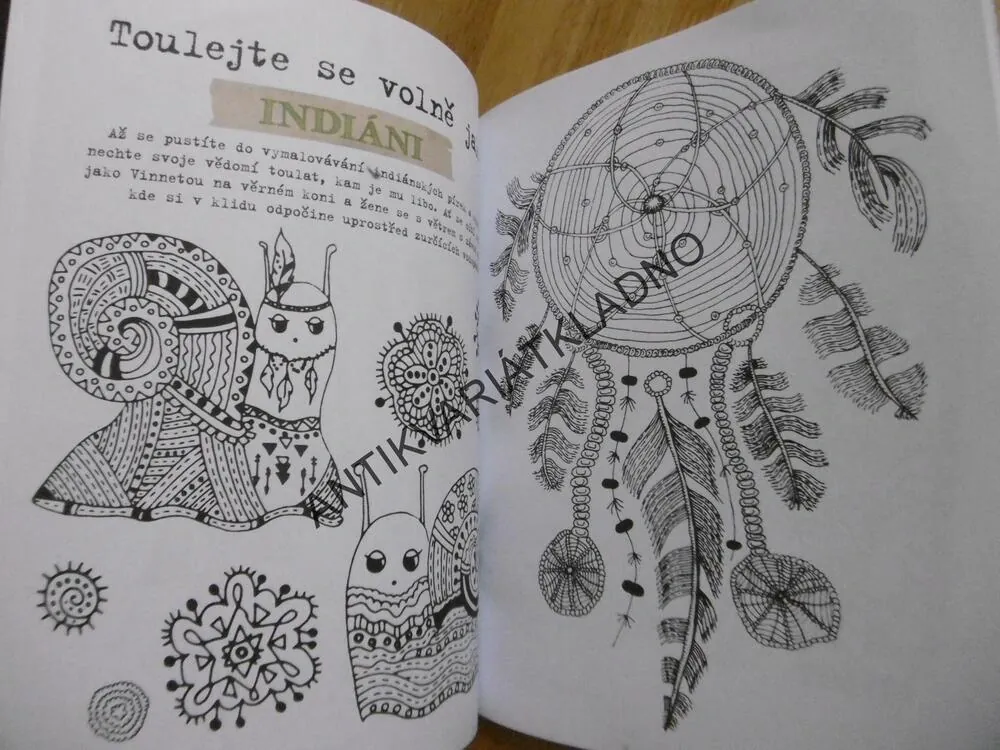 Toulejte se volně
INDIÁNI
Až se pustíte do vymalovávání indiánských
nechte svoje vědomí toulat, kam je mu libo. Ať se
jako Vinnetou na věrném koni a žene se s větrem o
kde si v klidu odpočine uprostřed zurčících
ANTIKVARIÁTKLADNO